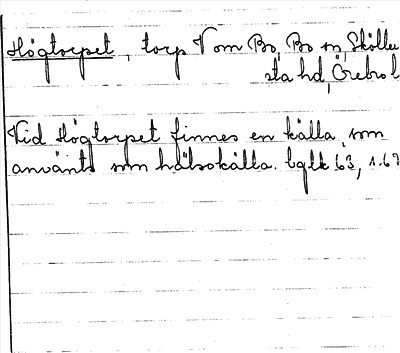 Högtorpet, torp V om Bo, Bo sn, Skölle
sta hd, Örebro l
Vid Högtorpet finnes en källa, som
använts som hälsokälla. bglk 63, s.